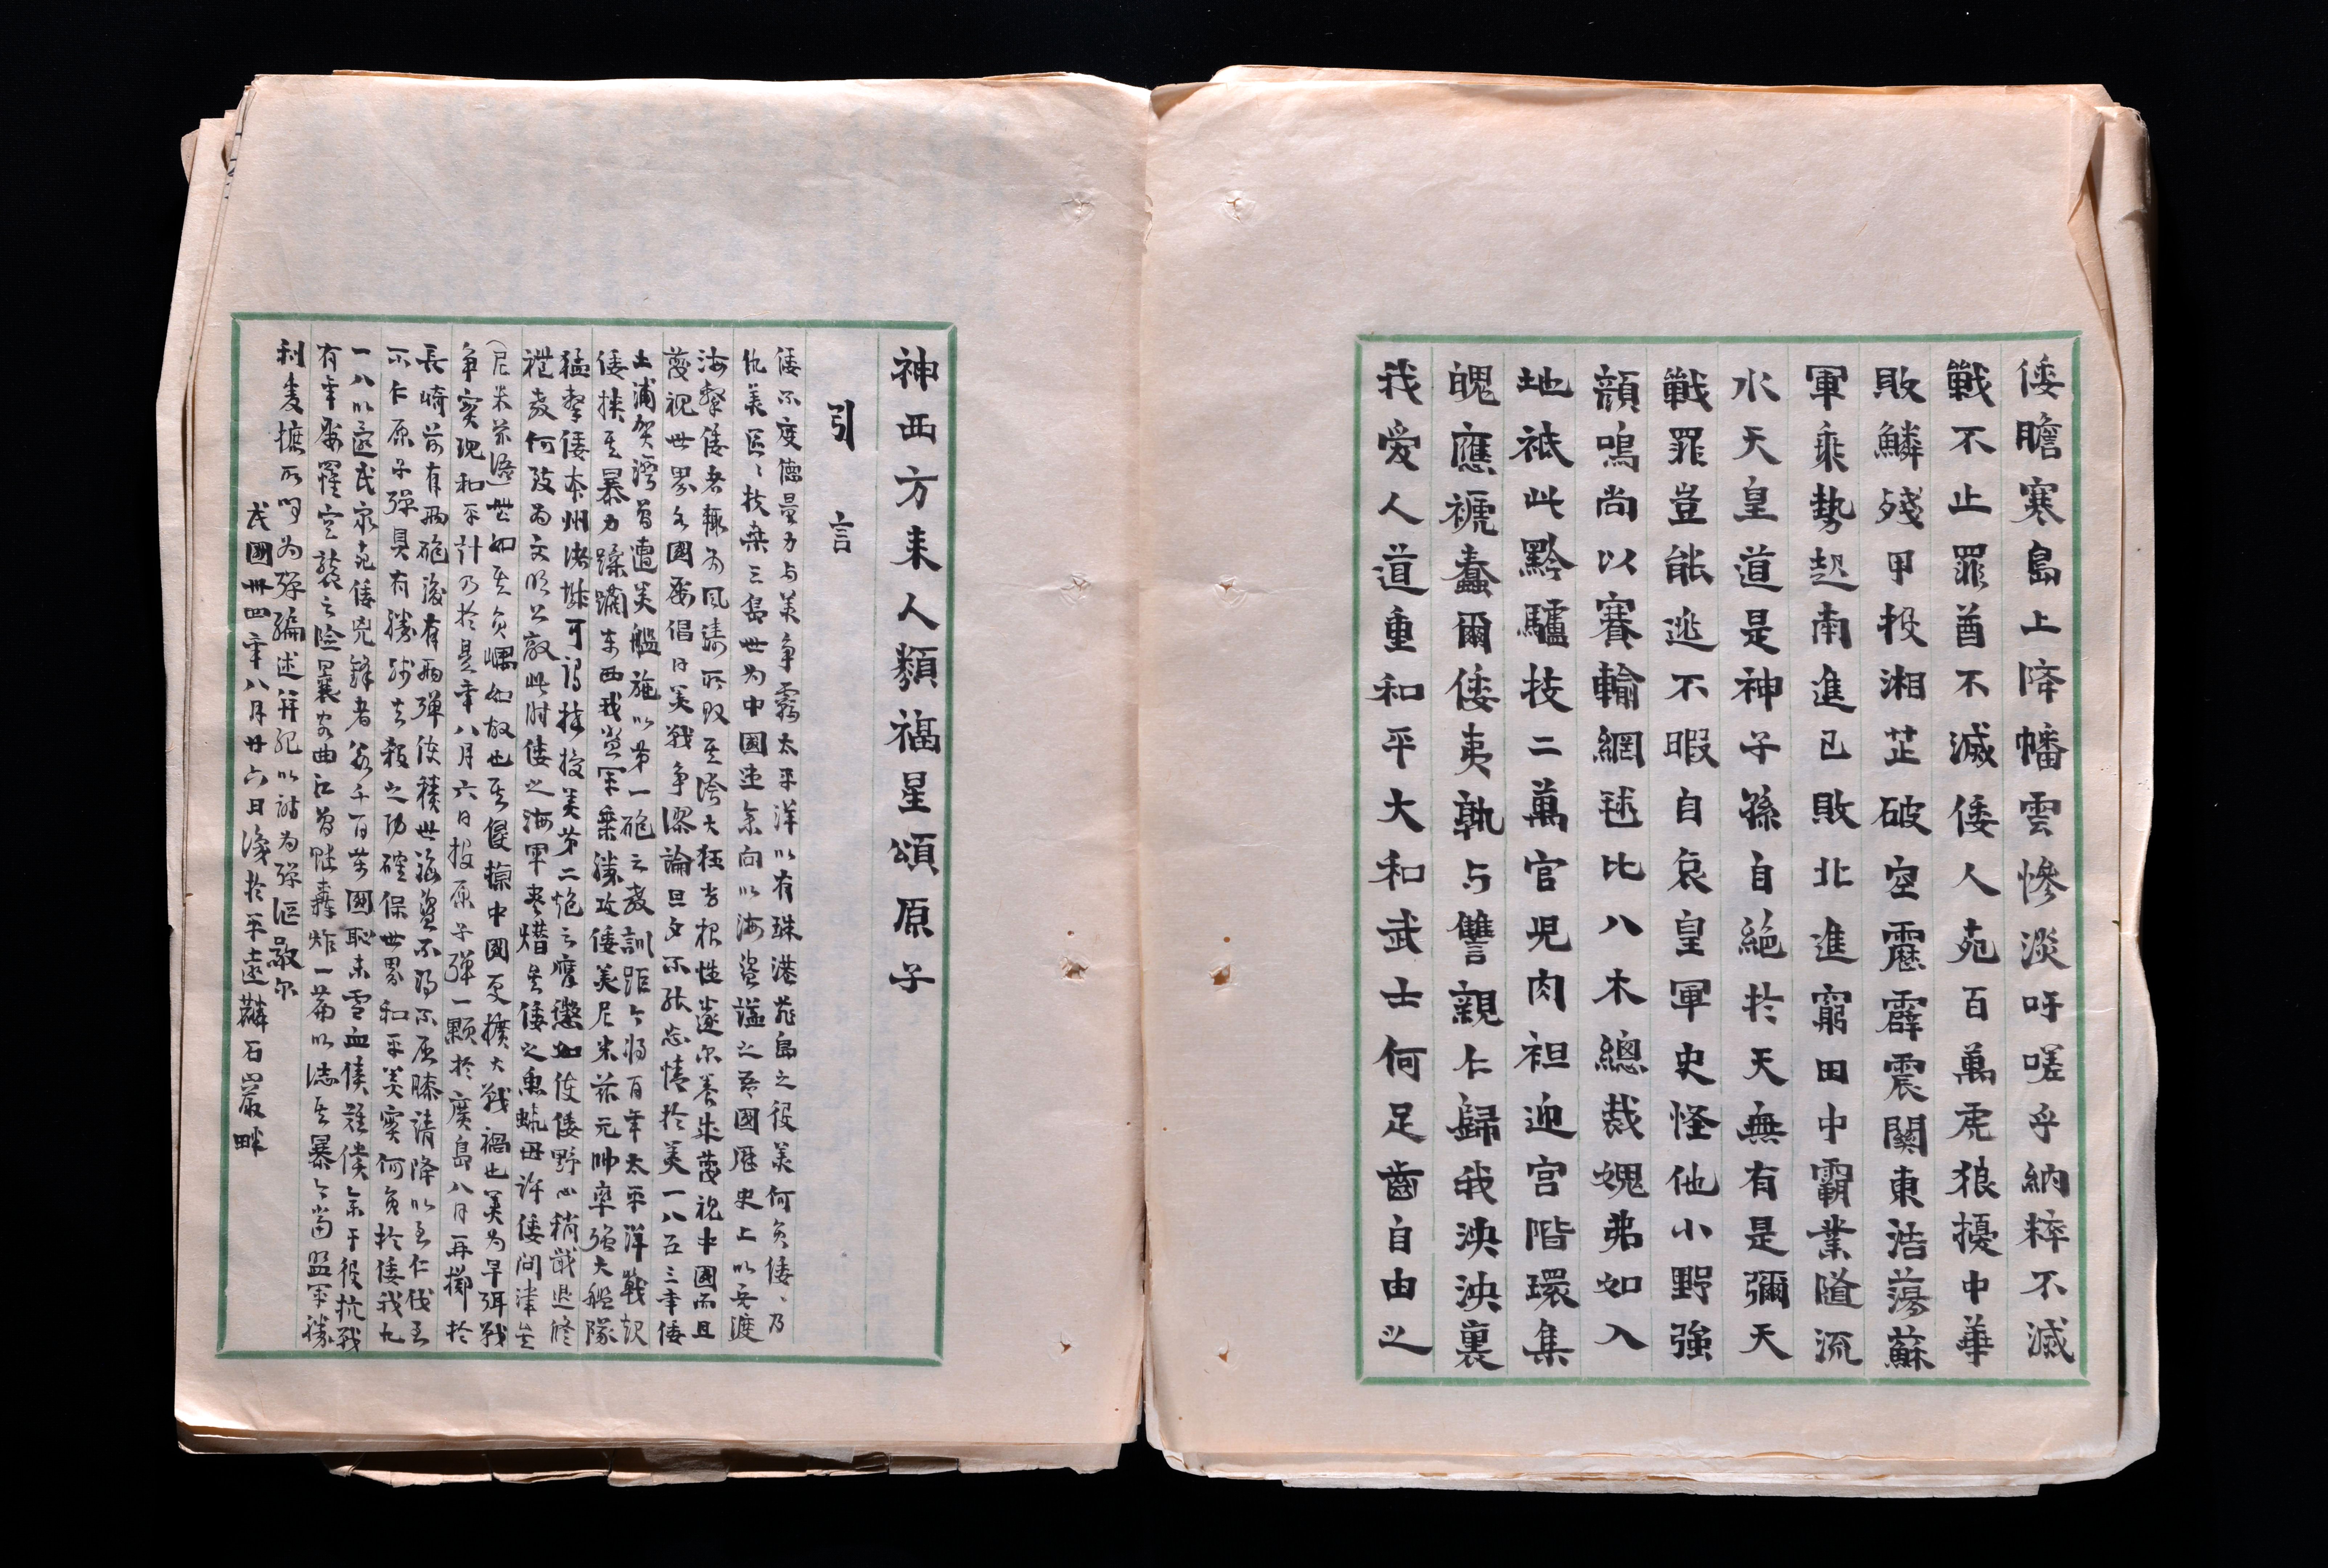 倭瞻寒島上降幡雲慘淡吁嗟乎納粹不滅
戰不止罪酋不滅倭人苑百萬虎狼擾中華
敗鱗殘甲投湘芷破空靂霹震關東浩蕩蘇
軍乘勢起南進已敗北進窮田中霸業隨流
水天皇道是神子孫自絕於天無有是彌天
戰罪豈能逃不暇自哀皇軍史怪他小野強
顏鳴尚以賽輸網毬比八木總裁媿弗如入
地祇此黔驢技二萬官兒肉袒迎宮階環集
醜應褫蠢爾倭夷孰与讐言親仁歸我泱泱裏
我愛人道重和平大和武士何足齒自由之
神西方来人類福星頌原子
引言
倭不度德量力与美爭霸太平洋以有珠港菲島之役美何負倭、乃
仇美區、扶桑三島世为中國患余向以海盜諡之吾國歷史上以兵渡
海擊倭者輒为風濤所敗其誇大狂劣根性遂尔養成蔑視中國而且
蔑視世界各國屡倡日美戰争謬論旦夕不能忘情於美一八五三年倭
土浦賀灣曾遭美艦施以第一砲之教訓距今將百年太平洋戰起
倭挾其暴力蹂躪東西我盟軍乘勝攻倭美尼米茲元帥率强大艦隊
猛擊倭本州諸城可謂接授美第二炮之膺懲如使倭野心稍戢退修
禮教何致为文明公敵此时倭之海軍尽熸 倭之 毋許倭問津矣
(尼米茲語)世如其負嵎如故也其侵掠中國更擴大戰禍也美为早弭戰
争實現和平計乃於是年八月六日投原子彈一顆於廣島八月再擲於
長崎前有兩砲後有兩彈使積世海盜不得不屈膝請降以至仁伐至
不仁原子彈具有勝殘去殺之功確保世界和平美實何負於倭我九
一八以還民衆死倭兇鋒者若千百萬國恥未雪血債難償余于役抗戰
有年屡罹空襲之險曩客曲江曾賦轟炸一篇以誌其暴今當盟軍勝
利爰摭所聞为彈编述并紀以詩为彈謳歌尔
民國卅四年八月廿六日渙於平遠麟石巖畔